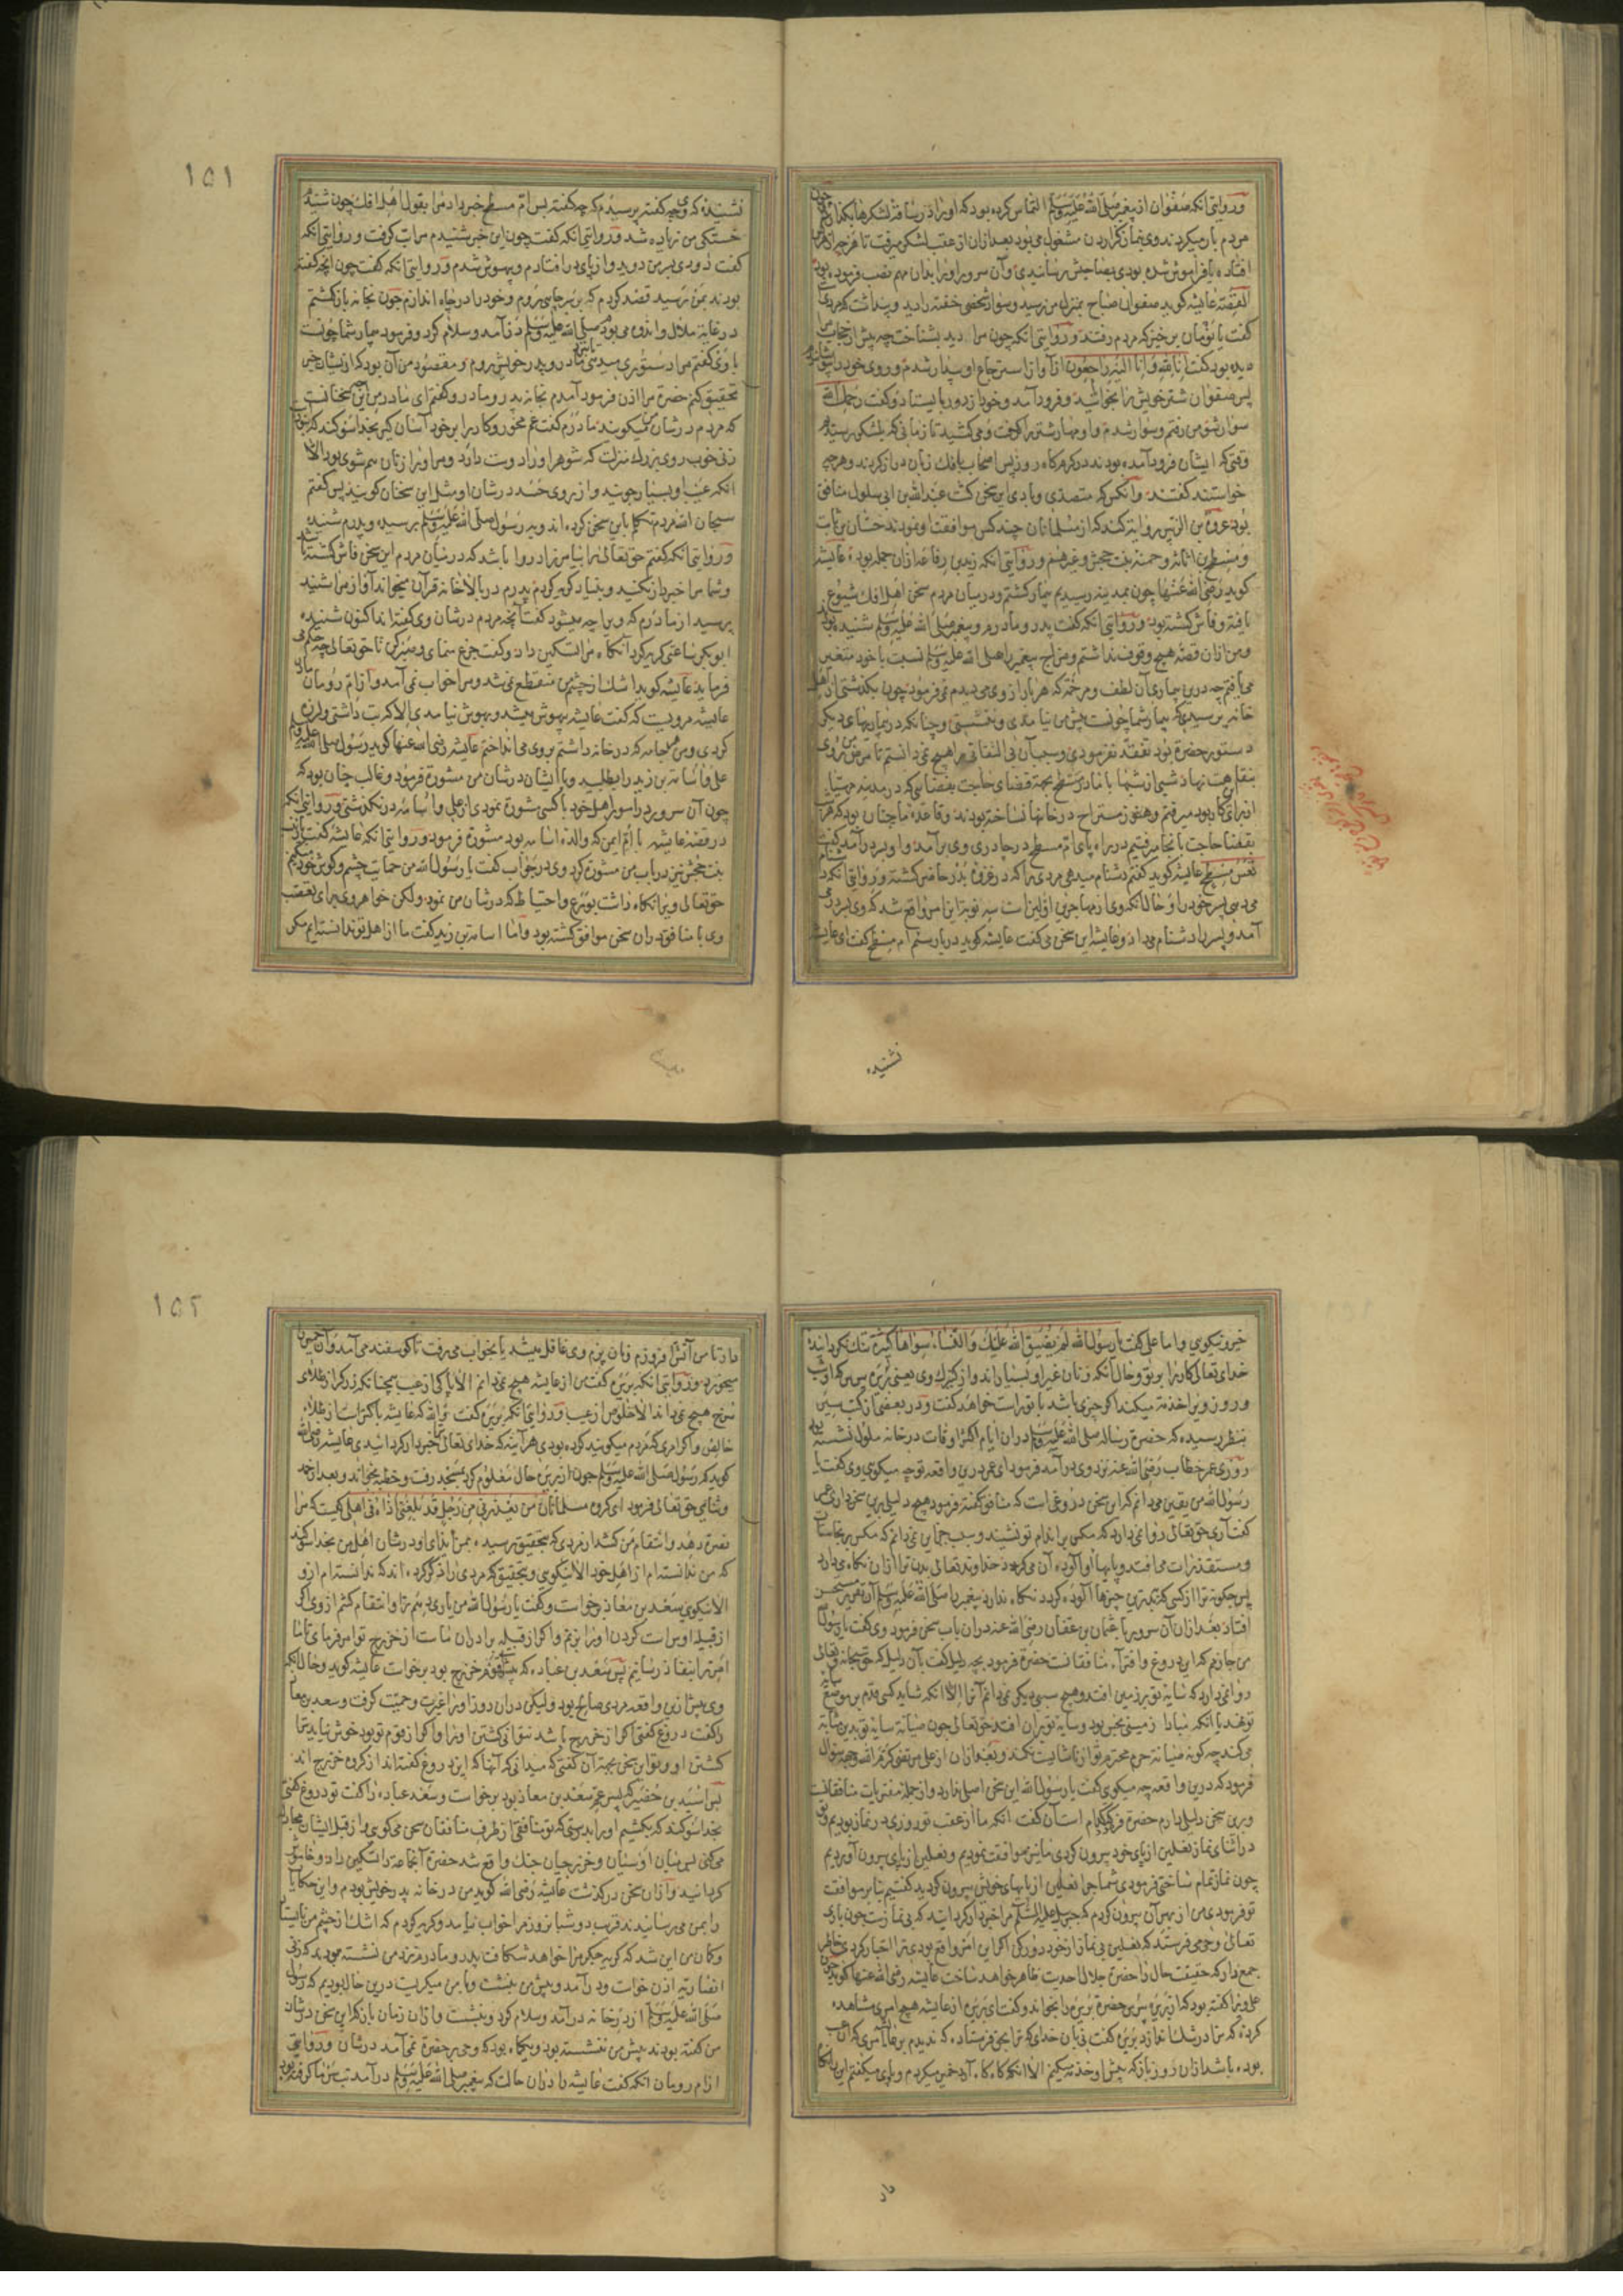 و روایتی آنکه صفوان از پیغمبر صلی الله علیه وسلم التماس کرده بود که او را در ساقه لشکرها بگذارد چون
مردم بار میکردند وی بنماز گزاردن مشغول می بود بعد ازان از عقب لشکر میرفت تا هر چه از مردم
افتاده یا فراموش شده بودی بصاحبش رسانیدی و آن سرور او را بدان مهم نصب فرموده بود
القصه عایشه گوید صفوان صباح بمنزل من رسید و سواد شخصی خفته را دید و پنداشت که مردی
گفت یا نومان برخیز که مردم رفتند و روایتی آنکه چون مرا دید بشناخت چه پیش از حجاب مرا
دیده بود گفت انا لله وانا الیه راجعون از آواز استرجاع او بیدار شدم و روی خود را بپوشانیدم
پس صفوان شتر خویش را بخوابانید و فرود آمد و خود از دور بایستاد و گفت رحمک الله
سوار شو من رفتم و سوار شدم و او مهار شتر را گرفت و می کشید تا زمانی که بلشکر رسیدیم
وقتی که ایشان فرود آمده بودند در گرمگاه روز پس اصحاب افک زبان دراز کردند و هر چه
خواستند گفتند و آنکس که متصدی و بادی این سخن گشت عبدالله بن ابی سلول منافق
بود عروة بن الزبیر روایة کند که از مسلمانان چند کس موافقت او نمودند حسان بن ثابت
و مسطح بن اثاثه و حمنه بنت جحش و غیرهم و روایتی آنکه زید بن رفاعه ازان جمله بود عایشه
گوید رضی الله عنها چون بمدینه رسیدیم بیمار گشتم و در میان مردم سخن اهل افک شیوع
یافته و فاش گشته بود و روایتی آنکه گفت پدر و مادرم و پیغمبر صلی الله علیه وسلم شنیده بودند
و من ازان قصه هیچ وقوف نداشتم و مزاج پیغمبر را صلی الله علیه وسلم نسبت با خود متغیر
می یافتم چه درین بیماری آن لطف و مرحمة که هر بار از وی می دیدم نمی فرمود چون بگذشتی از اهل
خانه پرسیدی که بیمار شما چونست پیش من نیامدی و ننشستی و چنانکه در بیماریهای دیگر
دستور حضرة بود تفقد نفرمودی و سبب آن بی التفاتی را هیچ نمی دانستم تا مرض من روی
بنقاهت نهاد شبی از شبها با مادر مسطح بجهة قضای حاجت بفضایی که در مدینه مهیا
از برای کار بود میرفتم و هنوز مستراح در خانها نساخته بودند و قاعده ما چنان بود که هر شب
بقضاء حاجت بآنجا میرفتیم در راه پای ام مسطح در چادر وی برآمد و او بر در آمد گفت
تعس مسطح عایشه گوید گفتم دشنام میدهی مردی را که در غزوه بدر حاضر گشته و روایتی آنکه
می دهی پسر خود را و حال آنکه وی از مهاجرین اولین است سه نوبت این امر واقع شد که وی
آمد و پسر را دشنام می داد و عایشه این سخن می گفت عایشه گوید در بار سیم ام مسطح گفت ای عایشه
نشنیدهٔ
۱۵۱
نشنیدهٔ که وی چه گفته پرسیدم که چه گفته پس ام مسطح خبر داد مرا بقول اهل افک چون شنیدم
خستگی من زیاده شد و روایتی آنکه گفت چون این خبر شنیدم مرا تب گرفت و روایتی آنکه
گفت دودی بسر من دوید و از پای در افتادم و بیهوش شدم و روایتی آنکه گفت چون آنچه گفته
بودند بمن رسید قصد کردم که بر سر چاهی روم و خود را در چاه اندازم چون بخانه بازگشتم
در غایة ملال و اندوه می بودم رسول صلی الله علیه وسلم در آمد و سلام کرد و فرمود بیمار شما چونست
با وی گفتم مرا دستوری میدهی تا بخانه مادر و پدر خویش روم و مقصود من آن بود که از ایشان خبر
تحقیق کنم حضرة مرا اذن فرمود آمدم بخانه پدر و مادر و گفتم ای مادر من این چه سخنانست
که مردم در شان من میگویند مادرم گفت غم مخور و کار را بر خود آسان گیر بخدا سوگند که نبود
زنی خوب روی بزرگ منزلت که شوهر او را دوست دارد و مر او را زنان هم شوی بود الا
آنکه عیب او بسیار جویند و از روی حسد در شان او مثل این سخنان گویند پس گفتم
سبحان الله مردم تکلم باین سخن کرده اند و به رسول صلی الله علیه وسلم رسیده و پدرم شنیده
و روایتی آنکه گفتم حق تعالی ترا بیامرزاد روا باشد که در میان مردم این سخن فاش گشته باشد
و شما مرا خبردار نکنید و بنیاد گریه کردم پدرم در بالاخانه قرآن میخواند آواز مرا شنید
پرسید از مادرم که ویرا چه میشود گفت آنچه مردم در شان وی گفته اند اکنون شنیده
ابوبکر ساعتی گریه کرد آنگاه مرا تسکین داد و گفت جزع منمای و صبر کن تا حق تعالی چه حکم
فرماید عایشه گوید اشک از چشم من منقطع نمی شد و مرا خواب نمی آمد و از ام رومان مادر
عایشه مرویست که گفت عایشه بیهوش میشد و بهوش نیامدی الا که تب داشتی و لرزه
کردی و من هر جامه که در خانه داشتم بر وی می انداختم عایشه رضی الله عنها گوید رسول صلی الله علیه وسلم
علی و اسامة بن زید را بطلبید و با ایشان در شان من مشورة فرمود و غالب چنان بود که
چون آن سرور در امور اهل خود با کسی مشورة نمودی از علی و اسامه در نگذشتی و روایتی آنکه
در قصه عایشه با ام ایمن که والده اسامه بود مشورة فرمود و روایتی آنکه عایشه گفت با زینب
بنت جحش نیز در باب من مشورة کرد وی در جواب گفت یا رسول الله من حمایت چشم و گوش خود میکنم
حق تعالی ویرا نگاه داشت بورع و احتیاط که در شان من نمود ولیکن خواهر وی برای تعصب
وی با منافقان دران سخن موافق گشته بود و اما اسامة بن زید گفت ما از اهل تو ندانسته ایم مگر
خیر و نیکویی و اما علی گفت یا رسول الله لم یضیق الله علیک والنساء سواها کثیرة تنگ نگردانیده
خدای تعالی کار را بر تو و حال آنکه زنان غیر او بسیار اند و از کنیزک وی یعنی بریره بپرس که او شب
و روز ویرا خدمة میکند اگر چیزی باشد با تو راست خواهد گفت و در بعضی از کتب سیر
بنظر رسیده که حضرة رساله صلی الله علیه وسلم دران ایام اکثر اوقات در خانه ملول نشسته بود
روزی عمر خطاب رضی الله عنه نزد وی در آمد فرمود ای عمر درین واقعه تو چه میگویی وی گفت یا
رسول الله من یقین می دانم که این سخن دروغی است که منافقان گفته فرمود هیچ دلیلی برین سخن داری عمر
گفت آری حق تعالی روا نمی دارد که مگس بر اندام تو نشیند و سبب جز این نمی دانم که مگس بر نجاسات
و مستقذرات می افتد و پایهای او آلوده آن می گردد خداوند تعالی بدن ترا ازان نگاه می دارد
پس چگونه ترا از کسی که بدترین چیزها آلوده گردد نگاه ندارد پیغمبر را صلی الله علیه وسلم آن تقریر مستحسن
افتاد بعد ازان آن سرور با عثمان بن عفان رضی الله عنه دران باب سخن فرمود وی گفت یا رسول الله
من جازم که این دروغ و افتراء منافقانست حضرة فرمود بچه دلیل گفت بآن دلیل که حق سبحانه و تعالی
روا نمی دارد که سایه تو بر زمین افتد و هیچ سببی دیگر نمی دانم آنرا الا آنکه شاید کسی قدم بر موضع سایه
تو نهد یا آنکه مبادا زمینی نجس بود و سایه تو بران افتد حق تعالی چون صیانة سایه تو بدین مثابة
می کند چگونه صیانة حرم محترم تو از ناشایست نکند و بعد ازان از علی مرتضی کرم الله وجهه سؤال
فرمود که درین واقعه چه میگویی گفت یا رسول الله این سخن اصلی ندارد و از جمله مفتریات منافقانست
و برین سخن دلیل دارم حضرة فرمود کدام است آن گفت آنکه ما از عقب تو روزی در نماز بودیم و تو
در اثنای نماز نعلین از پای خود بیرون کردی ما نیز موافقت نمودیم و نعلین از پای بیرون آوردیم
چون نماز تمام ساختی فرمودی شما چرا نعلین از پایهای خویش بیرون کردید گفتیم بنا بر موافقت
تو فرمودی من از بهر آن بیرون کردم که جبریل علیه السلام مرا خبردار گردانید که نمی نمازیست چون باری
تعالی وحی می فرستد که نعلین بی نماز از خود دور کن اگر این امر واقع بودی ترا اخبار کردی خاطر
جمع دار که حقیقت حال را حضرة جلال احدیت ظاهر خواهد ساخت عایشه رضی الله عنها گوید چون
علی ویرا گفته بود که از بریره بپرس حضرة بریره را بخواند و گفت ای بریره از عایشه هیچ امری مشاهده
کردهٔ که ترا در شک اندازد بریره گفت بآن خدای که ترا بحق فرستاده که ندیدم بر وی امری که آن عیب
بوده باشد ازان روز باز که پیش او خدمة میکنم الا آنکه گاه گاه آرد خمیر میکردم و با وی میگفتم این را نگاه
دار
۱۵۲
دار تا من آتش افروزم و نان پزم وی غافل میشد یا بخواب می رفت تا گوسفند می آمد و آن خمیر
میخورد و روایتی آنکه بریره گفت من از عایشه هیچ نمی دانم الا پاکی از عیب همچنانکه زرگر از طلای
سرخ هیچ نمی داند الا خلوص از عیب و روایتی آنکه بریره گفت والله که عایشه پاکتر است از طلاء
خالص و اگر امری که مردم میگویند کرده بودی هر آینه که خدای تعالی ترا خبردار گردانیدی عایشه رضی الله
گوید که رسول صلی الله علیه وسلم چون از بریره حال معلوم کرد بمسجد رفت و خطبه بخواند و بعد از حمد
و ثنای حق تعالی فرمود ای گروه مسلمانان من یعذرنی من رجل قد بلغنی اذاه فی اهلی کیست که مرا
نصرة دهد و انتقام من کشد از مردی که بتحقیق رسیده بمن ایذای او در شان اهل من بخدا سوگند
که من ندانسته ام از اهل خود الا نیکویی و بتحقیق که مردی را ذکر کرده اند که ندانسته ام از و
الا نیکویی سعد بن معاذ برخواست و گفت یا رسول الله من یاری دهم ترا و انتقام کشم از وی اگر
از قبیله اوس است گردن او را بزنم و اگر از قبیله برادران ما است از خزرج تو امر فرمای تا ما
امر ترا بنفاذ رسانیم پس سعد بن عباده که پیشوای قوم خزرج بود برخواست عایشه گوید و حال آنکه
وی پیش ازین واقعه مردی صالح بود ولیکن دران روز او را غیرت و حمیت گرفت و سعد بن معاذ
را گفت دروغ گفتی اگر از خزرج باشد نتوانی کشتن او را و اگر از قوم تو بود خوش نیاید ترا
کشتن او و تو این سخن بجهة آن گفتی که میدانی که آنها که این دروغ گفته اند از گروه خزرج اند
پس اسید بن حضیر که پسر عم سعد بن معاذ بود برخواست و سعد عباده را گفت تو دروغ گفتی
بخدا سوگند که بکشیم او را بدرستی که تو منافقی از طرف منافقان سخن می گویی و از قبل ایشان مجادله
می کنی پس میان اوسیان و خزرجیان جنگ واقع شد حضرة آنجماعة را تسکین داد و خاموش
گردانید و ازان سخن در گذشت عایشه رضی الله گوید من در خانه پدر خویش بودم و این حکایات
را بمن می رسانیدند قریب دو شبانروز مرا خواب نیامد و گریه کردم که اشک از چشم من نایستاد
و گمان من این شد که گریه جگر مرا خواهد شکافت پدر و مادرم نزد من نشسته بودند که زنی
انصاریه اذن خواست و در آمد و پیش من بنشست و با من میگریست درین حال بودیم که رسول
صلی الله علیه وسلم از در خانه در آمد و سلام کرد و بنشست و ازان زمان باز که این سخن در شان
من گفته بودند پیش من ننشسته بود و یکماه بود که وحی بر حضرة نمی آمد در شان و روایتی
از ام رومان آنکه گفت عایشه را دران حالت که پیغمبر صلی الله علیه وسلم در آمد تب سرما گرفته بود